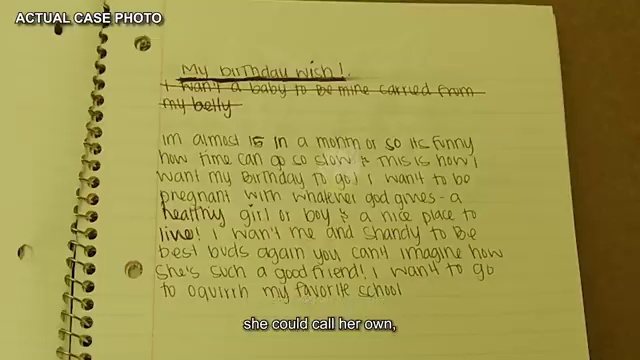 ACTUAL CASE PHOTO
My birthday wish!
I wan't a baby to be mine carried from
my belly
Im almost 15 in a month or so its funny
how time can go so slow & this is how I
want my Birthday to go! I want to be
pregnant with whatever god gives - a
healthy girl or boy & a nice place to
live! I wan't me and Shandy to Be
best buds again you can't imagine how
she's such a good friend! I want to go
to Oquirrh my favorite school
she could call her own,